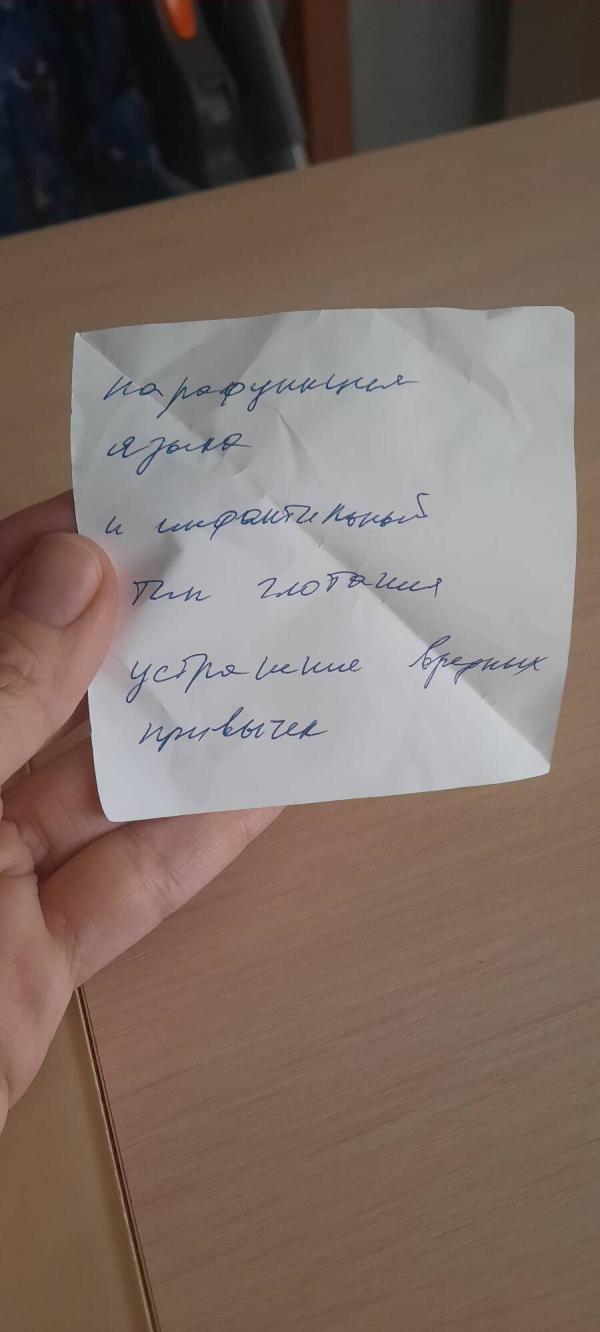 парафункция
языка
и инфантильный
тип глотания
устранение вредных
привычек